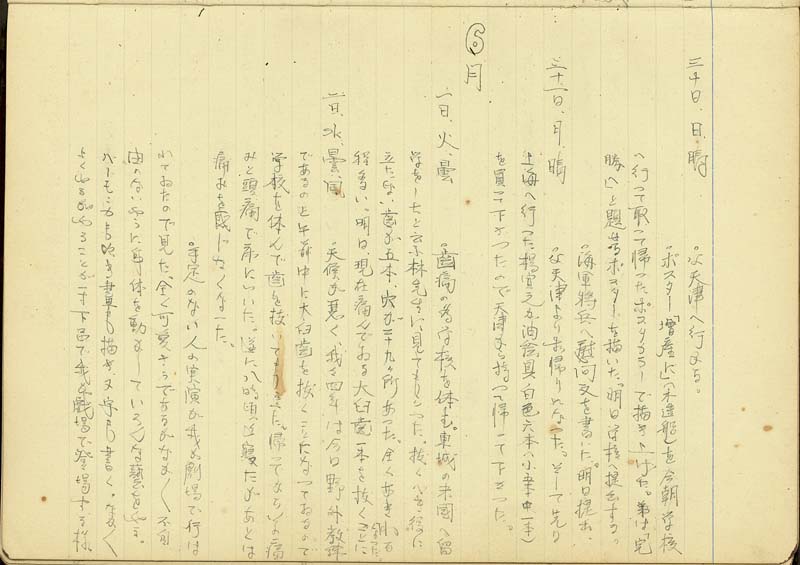 三十日、日、晴
。父天津へ行かる。
。ポスター「増産に」「木造船」を今朝学校
へ行って取って帰った。ポスターカラーで描き上げた。弟は「完
勝へ」と題せるポスターを描いた。明日学校へ提出する。
三十一日、月、晴
。海軍将兵へ慰問文を書いた。明日提出、
。父天津より帰りなさった。そして先日
上海へ行った楊宣元が油絵具白色六本(小五本中一本)
を買って下さったので天津から持って帰って下さった。
⑥月
一日、火、曇
。歯痛の為学校を休む。東城の米国へ留
学をしたと云ふ林先生に見てもらった。抜くべき
立たない歯が五本、穴が二十九ヶ所あった。全くあきれる
程多い。明日、現在痛んでゐる大臼歯一本を抜くことに
二日、水、曇、風
。天候が悪く、我々四年は今日野外教練
であるのと午前中に大臼歯を抜くことになってゐるので
学校を休んで歯を抜いてもらった。帰ってより
みと頭痛で床についた。遂に八時頃迄寝たがあとは
痛みを感じなくなった。
。手足のない人の実演が我が劇場で行は
れてゐたので見た。全く可愛さうであるがなかなか不自
由のないやうに身体を動かしていろんな藝をやる。
ハーモニカも吹き書も描き又字も書く。なかなか
よくやる
下邑で我が劇場で登場する様、